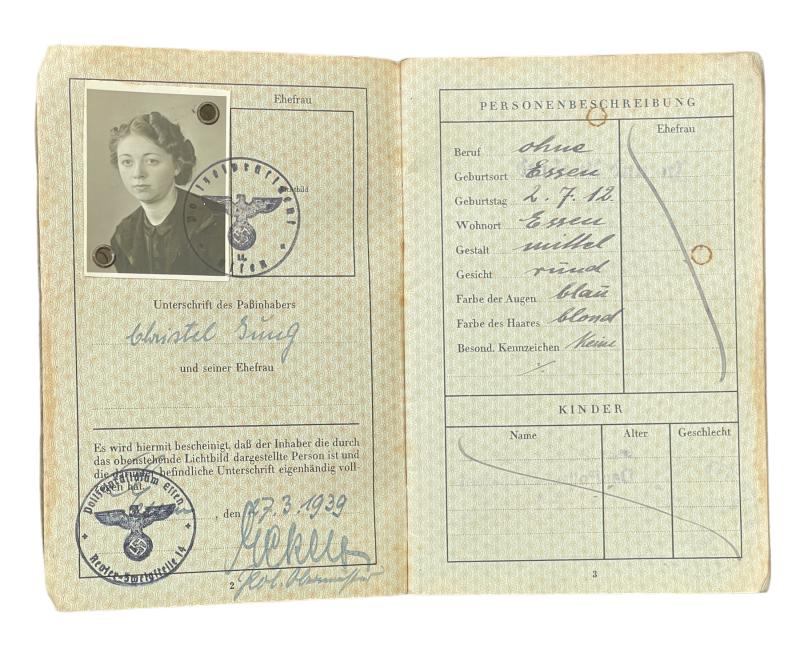 Ehefrau
Lichtbild
Unterschrift des Paßinhabers
Christel Jung
und seiner Ehefrau
Es wird hiermit bescheinigt, daß der Inhaber die durch
das obenstehende Lichtbild dargestellte Person ist und
die darunter befindliche Unterschrift eigenhändig voll-
zogen hat.
Polizeipräsidium Essen
Essen, den 27.3.1939
2
PERSONENBESCHREIBUNG
Ehefrau
Beruf ohne
Geburtsort Essen
Geburtstag 2.7.12.
Wohnort Essen
Gestalt mittel
Gesicht rund
Farbe der Augen blau
Farbe des Haares blond
Besond. Kennzeichen Keine
KINDER
Name Alter Geschlecht
3